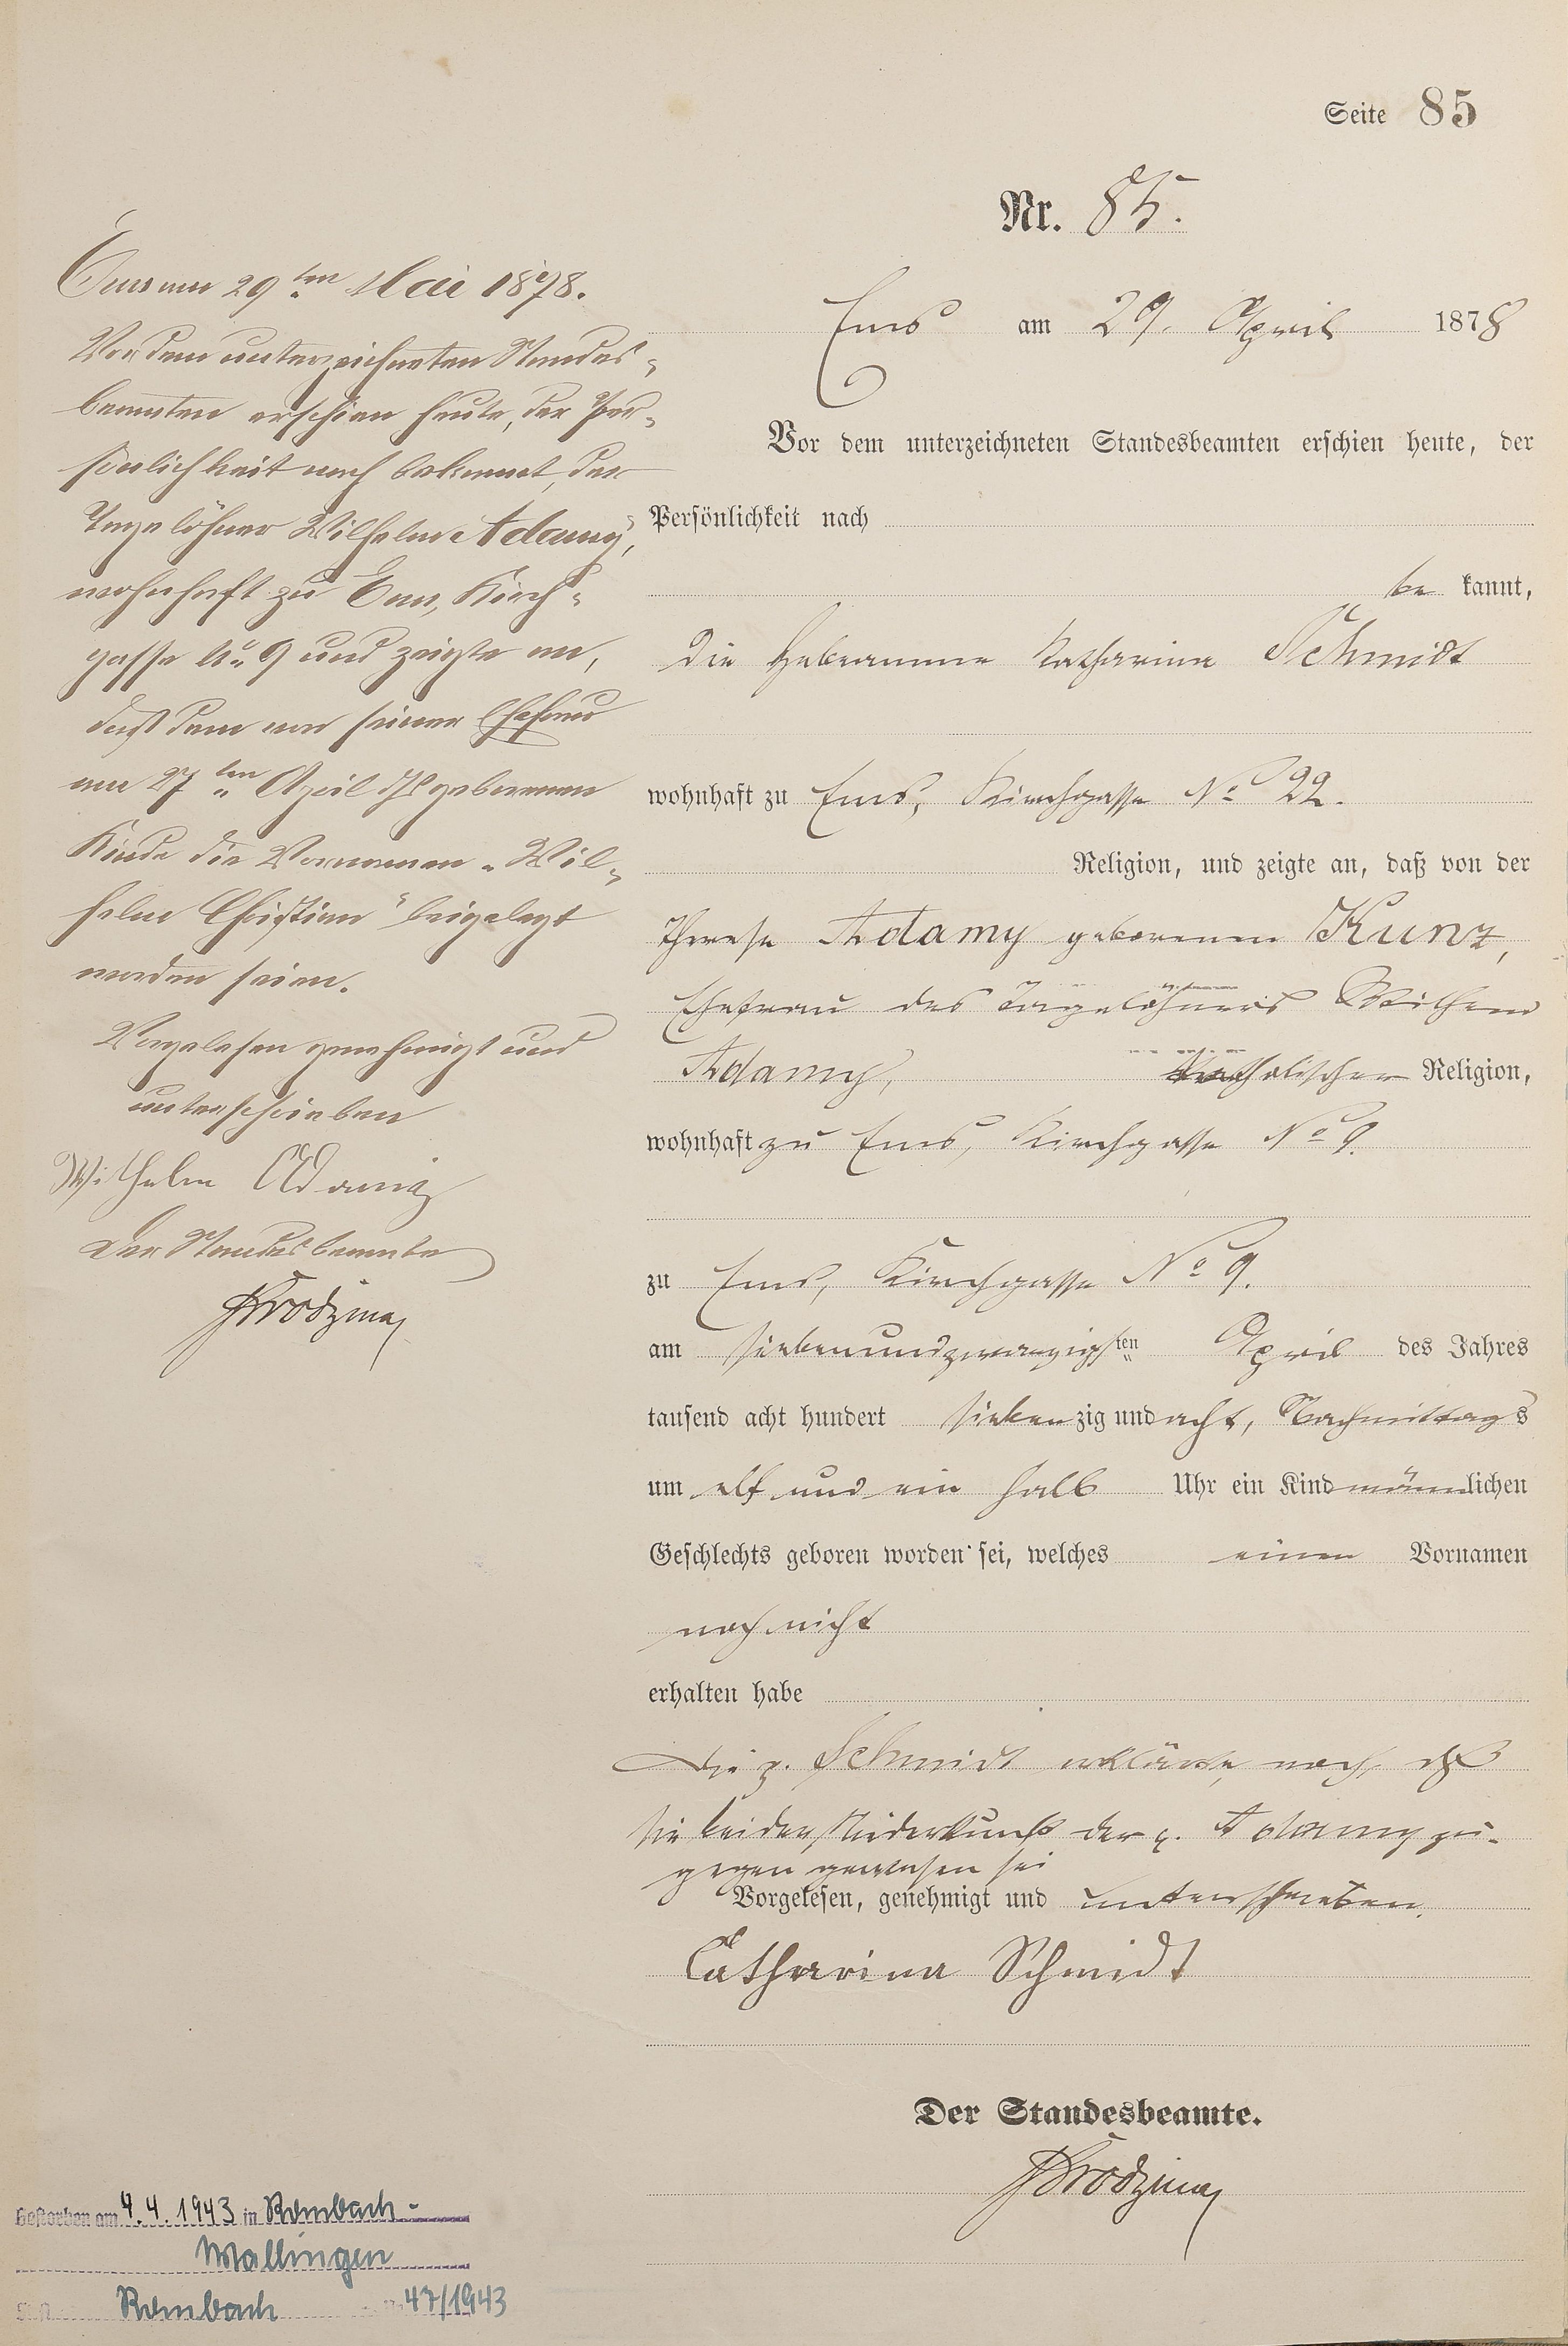 Seite 85
Nr. 85.
Ems am 29. April 1878
Vor dem unterzeichneten Standesbeamten erschien heute, der
Persönlichkeit nach
be kannt,
die Hebeamme Katharina Schmidt
wohnhaft zu Ems, Kirchgasse No 22.
Religion, und zeigte an, daß von der
Therese Adamy geborenen Kunz,
Ehefrau des Tagelöhners Wilhem
Adamy, katholischer Religion,
wohnhaft zu Ems, Kirchgasse No 9.
zu Ems, Kirchgasse No 9.
am siebenundzwanzigsten April des Jahres
tausend acht hundert siebenzig und acht, Nachmittags
um elf und ein halb Uhr ein Kind männlichen
Geschlechts geboren worden sei, welches einen Vornamen
noch nicht
erhalten habe
Die p. Schmidt erklärte, noch, daß
sie bei der Niederkunft der p. Adamy zu-
gegen gewesen sei
Vorgelesen, genehmigt und unterschrieben.
Catharina Schmidt
Der Standesbeamte.
Ems am 29ten Mai 1878.
Vor dem unterzeichneten Standes-
beamten erschien heute, der Per-
sönlichkeit nach bekannt, der
Tagelöhner Wilhelm Adamy,
wohnhaft zu Ems, Kirch-
gasse No 9 und zeigte an,
daß dem von seiner Ehefrau
am 27ten April geborenen
Kinde die Vornamen „Wil-
helm Christian" beigelegt
worden seien.
Vorgelesen genehmigt und
unterschrieben
Wilhelm Adamy
Der Standesbeamte
Gestorben am 4.4.1943 in Rombach-
Mallingen
Rombach 47/1943